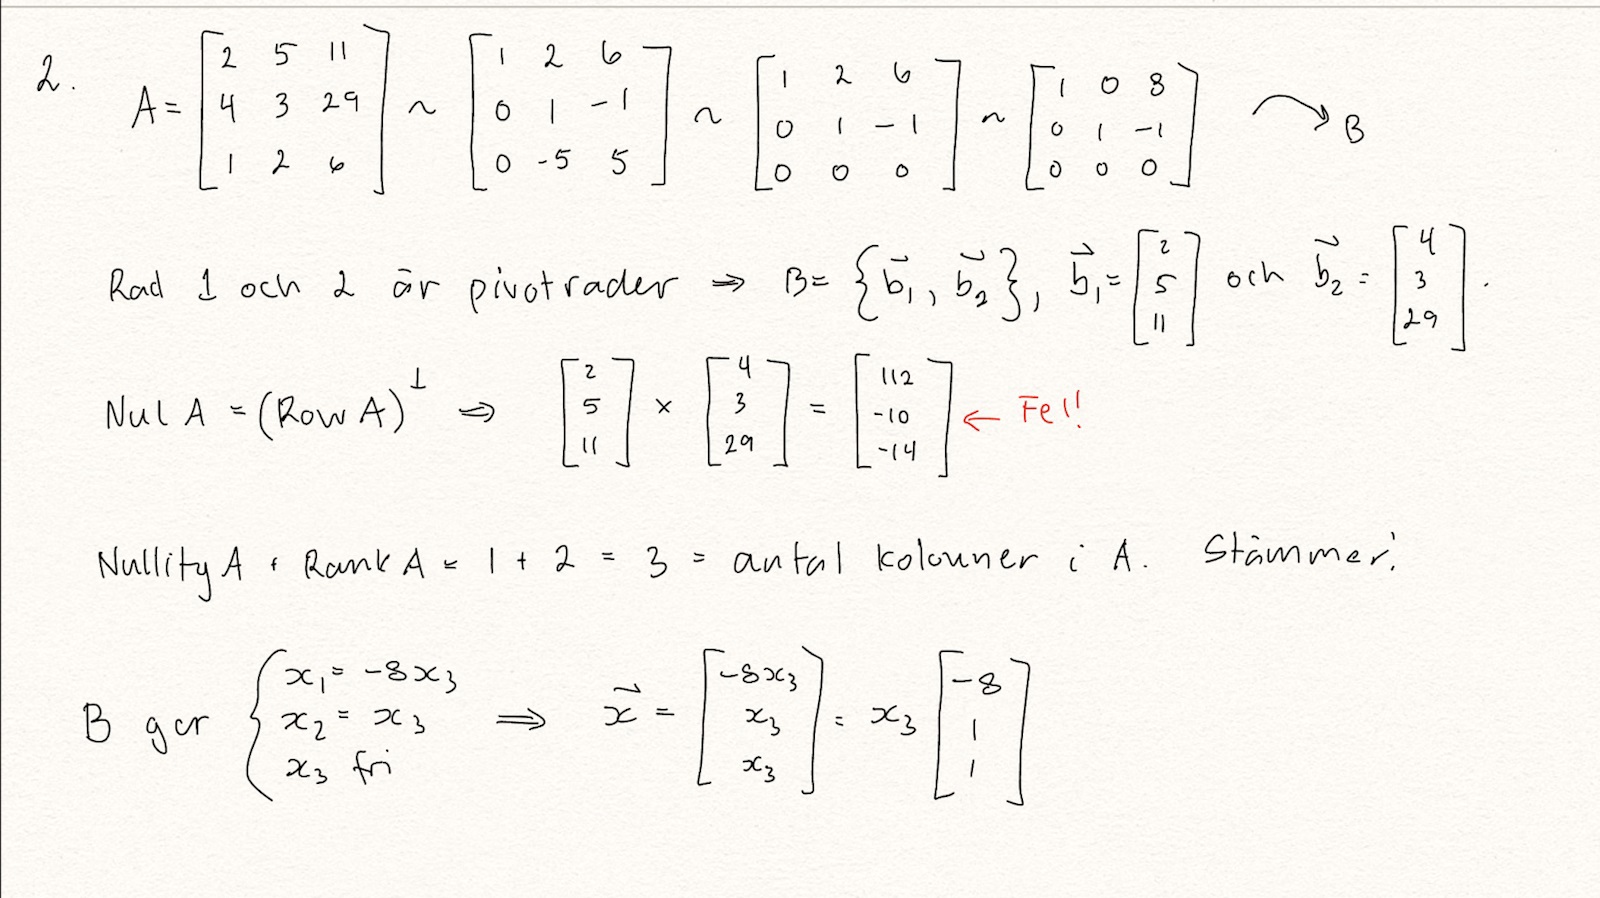 2. A = [2 5 11; 4 3 29; 1 2 6] ~ [1 2 6; 0 1 -1; 0 -5 5] ~ [1 2 6; 0 1 -1; 0 0 0] ~ [1 0 8; 0 1 -1; 0 0 0] → B
Rad 1 och 2 är pivotrader ⇒ B = {b⃗₁, b⃗₂}, b⃗₁ = [2; 5; 11] och b⃗₂ = [4; 3; 29].
Nul A = (Row A)^⊥ ⇒ [2; 5; 11] × [4; 3; 29] = [112; -10; -14] ← Fel!
Nullity A + Rank A = 1 + 2 = 3 = antal kolonner i A. Stämmer!
B ger { x₁ = -8x₃; x₂ = x₃; x₃ fri ⇒ x⃗ = [-8x₃; x₃; x₃] = x₃ [-8; 1; 1]